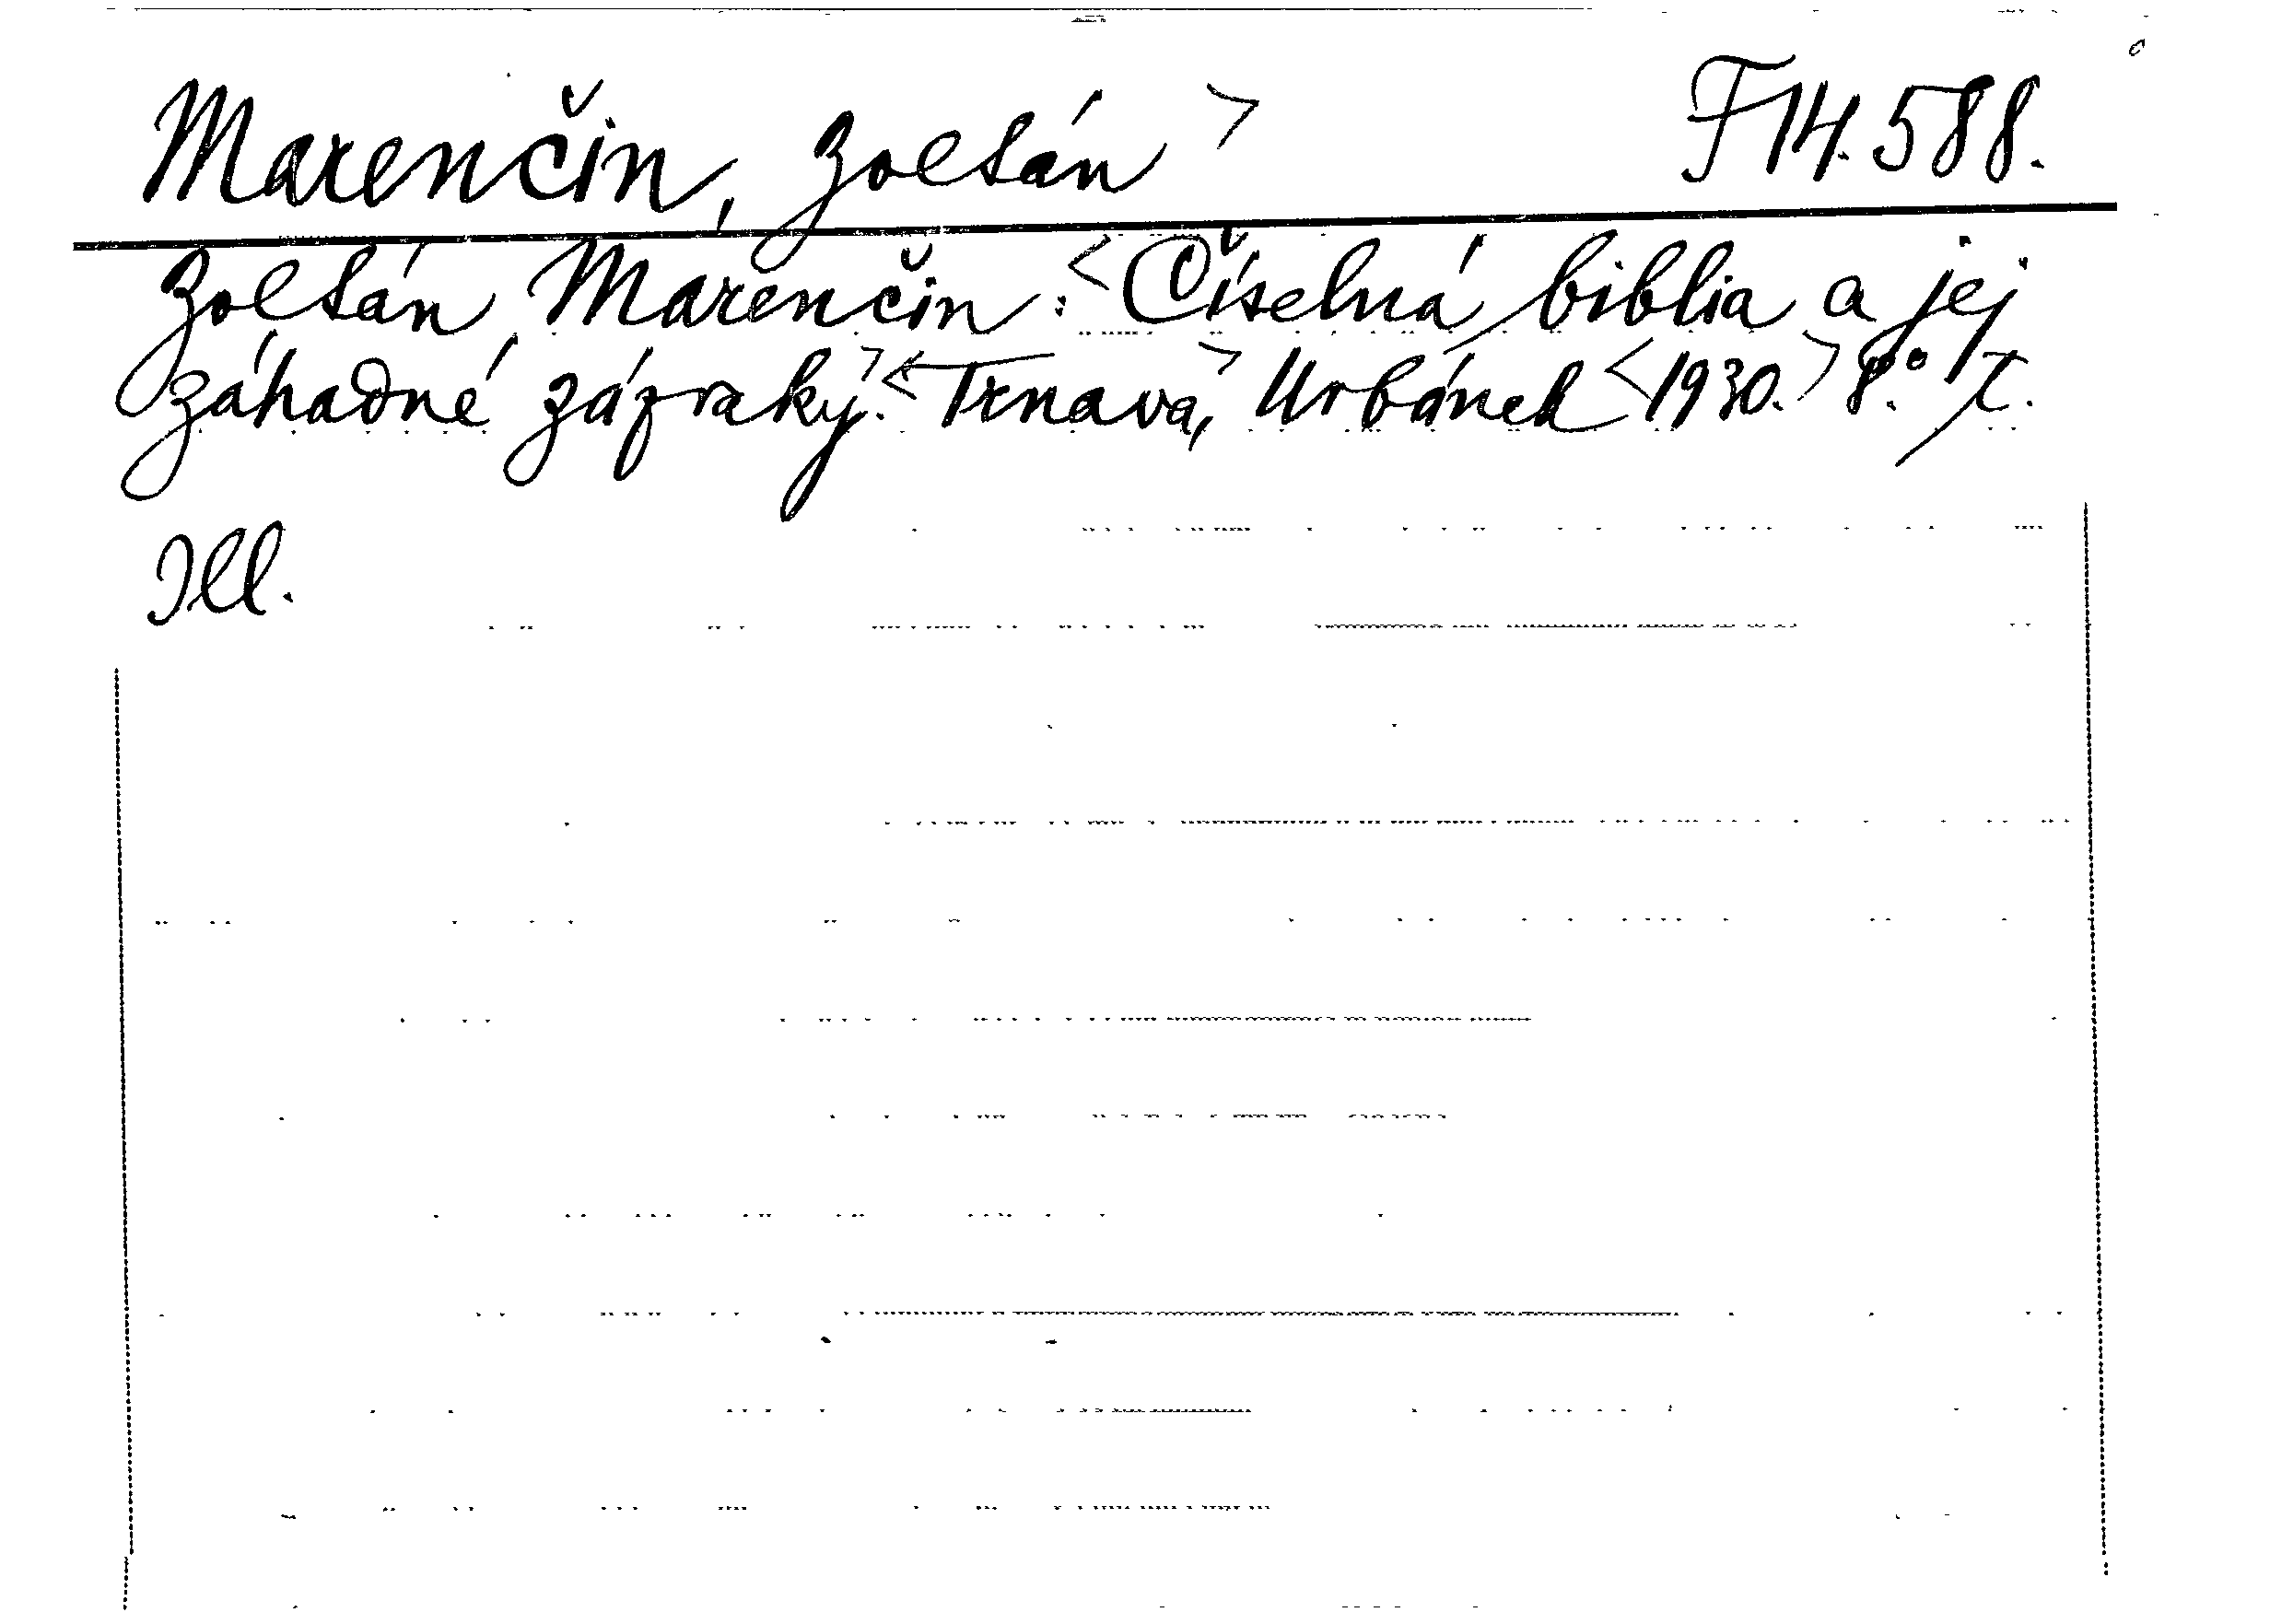 Marenčin, Zoltán > F 14.588.
Zoltán Marenčin: <Číselná biblia a jej
záhadné zázraky.> <Trnava,> Urbánek <1930.> 8.° T.
Ill.